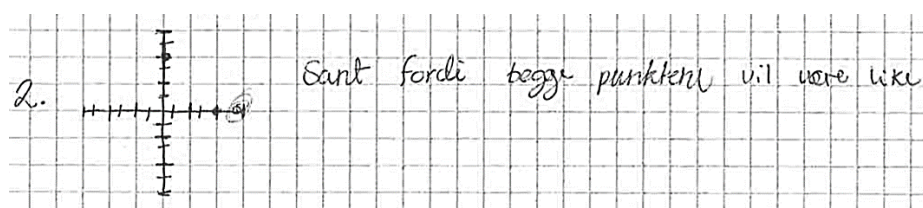 2. Sant fordi begge punktene vil være like